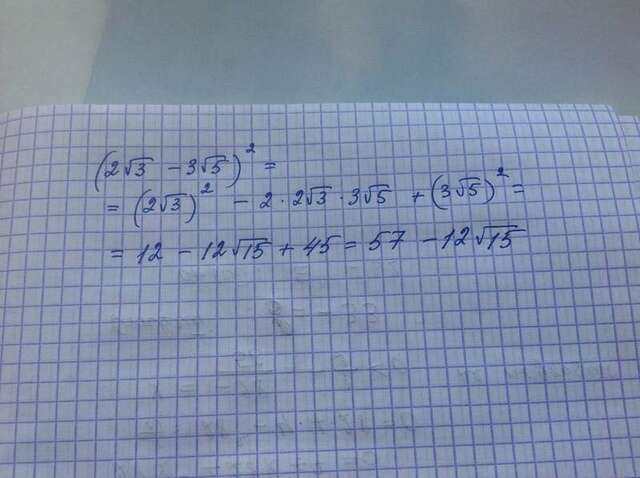 (2√3 - 3√5)² =
= (2√3)² - 2 · 2√3 · 3√5 + (3√5)² =
= 12 - 12√15 + 45 = 57 - 12√15